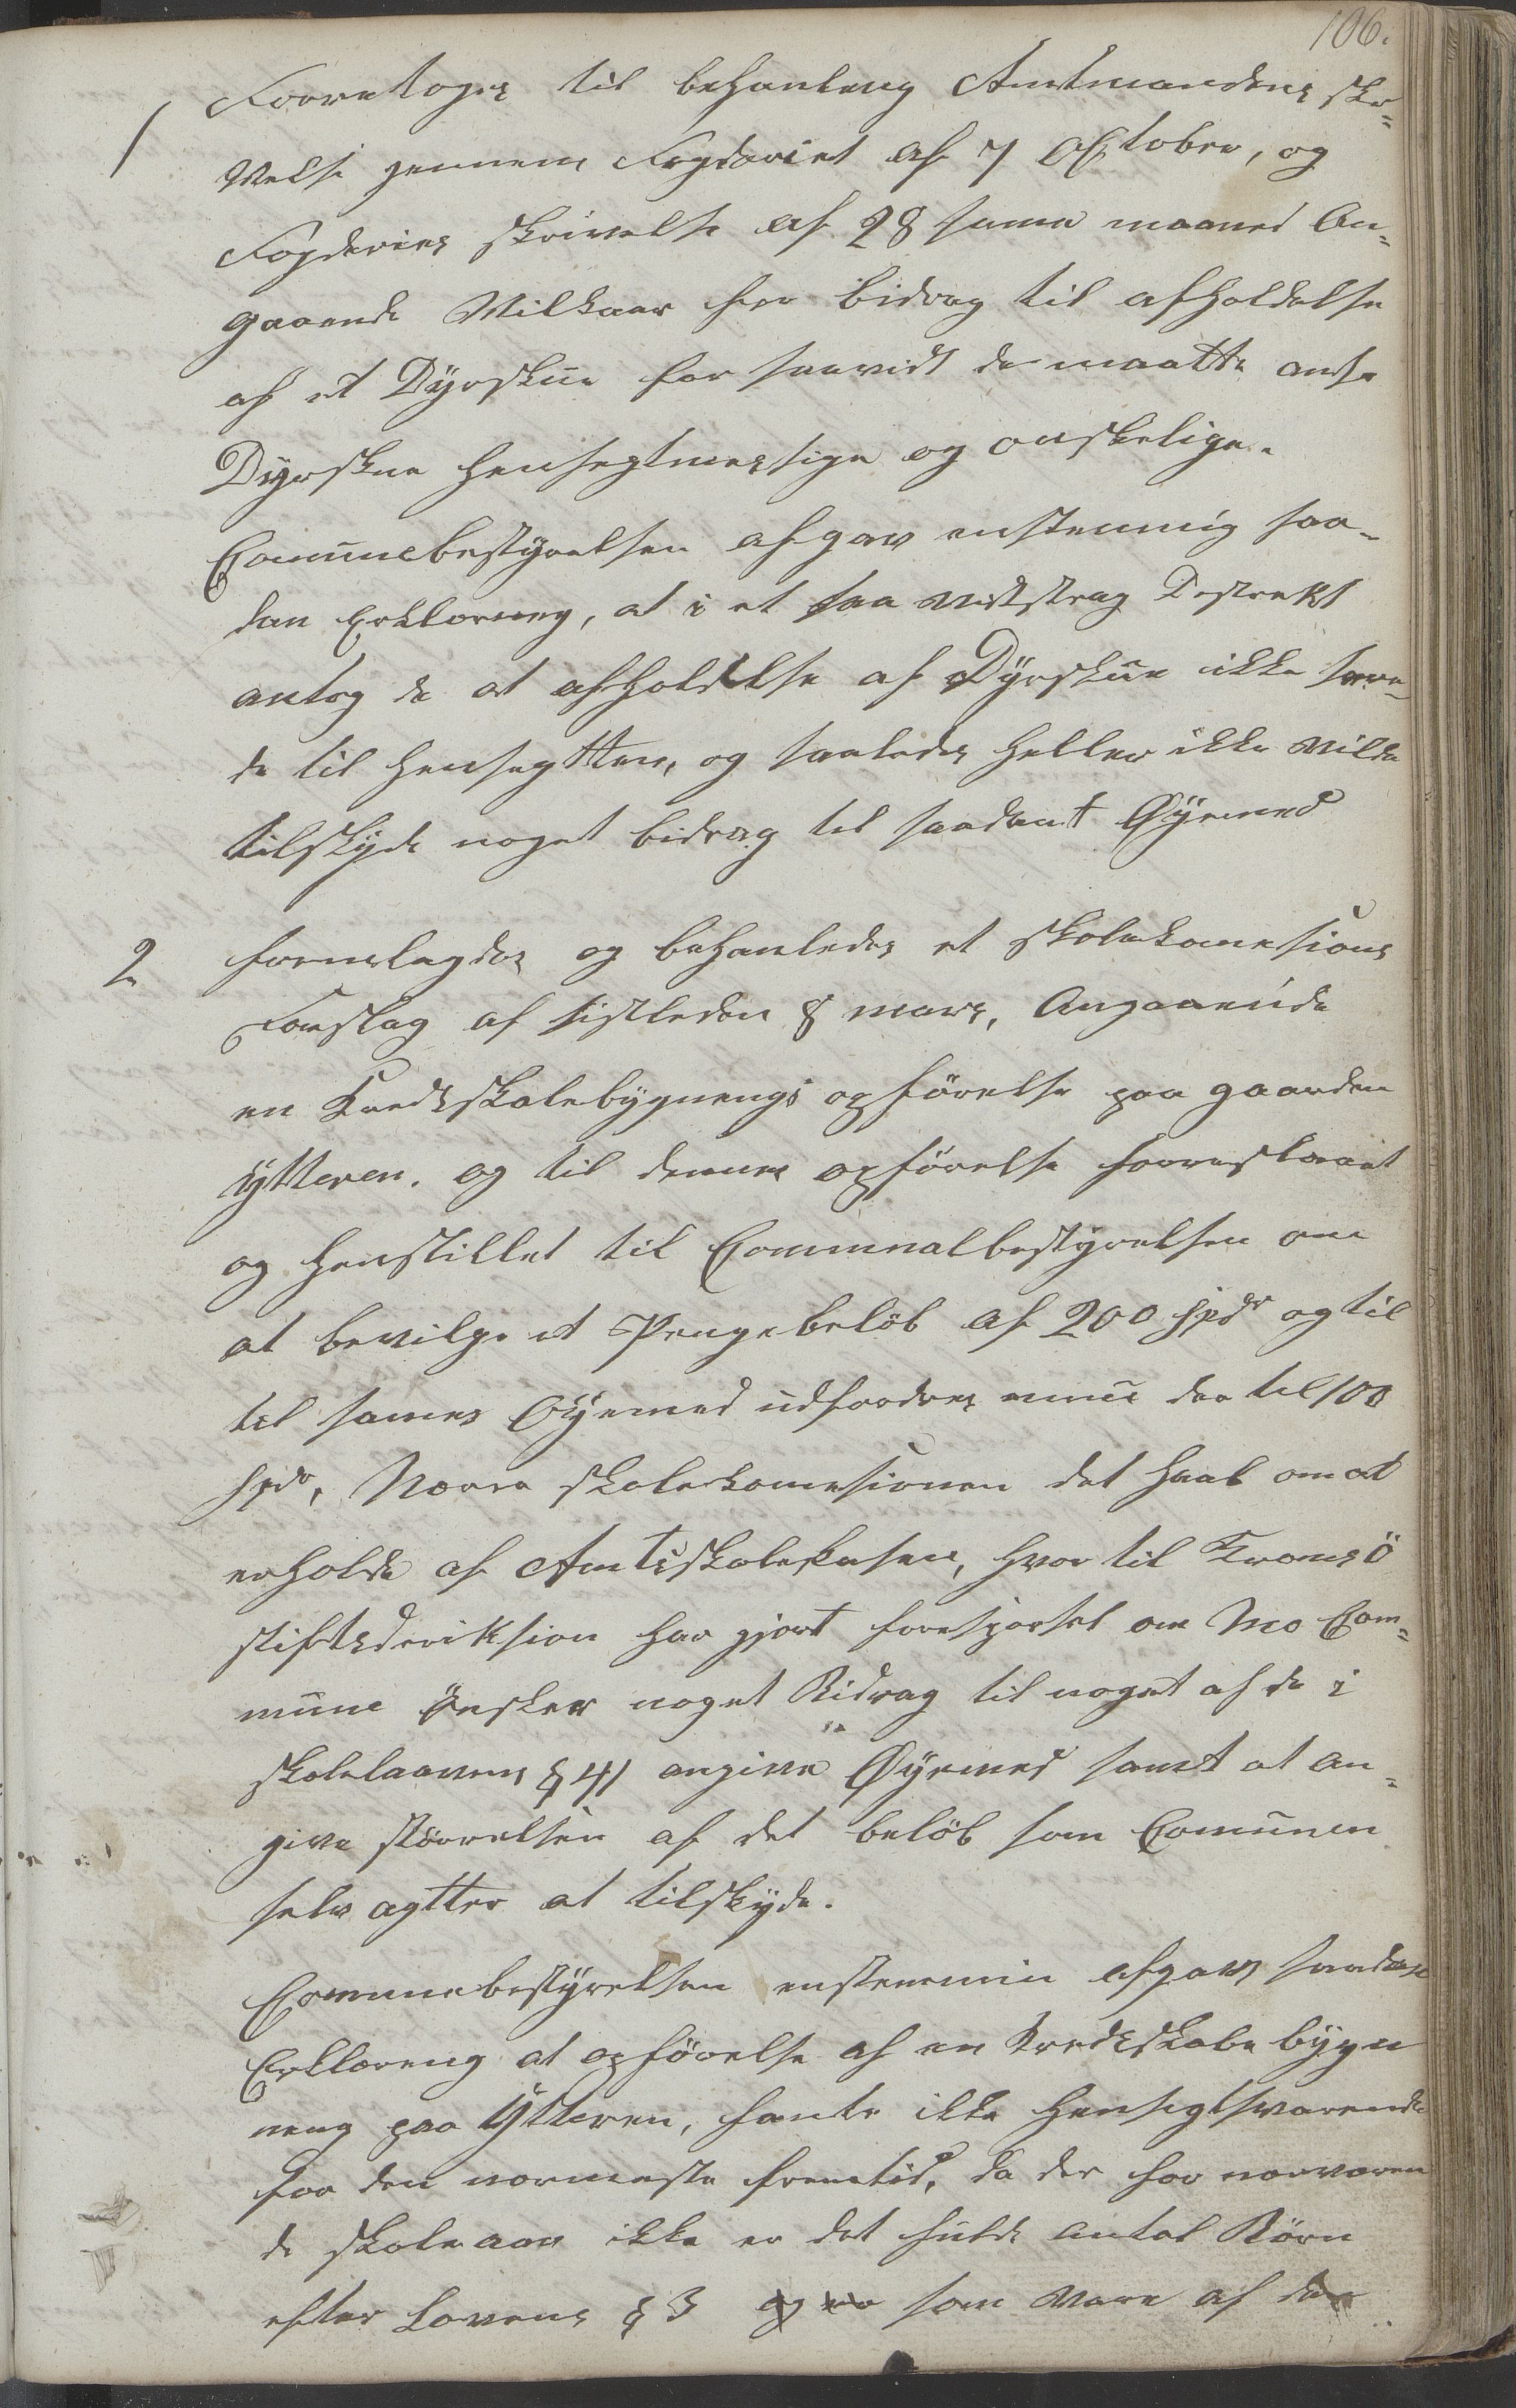 106.
1 Foretoges til behanleng Amtmandens skr-
velse gennem Fogderiet af 7 Oktober, og
Fogderies skrivelse af 28 samme maaned An-
gaaende Vilkaar for bidrag til afholdelse
af et Dyrskue for saavidt de maatte anse
Dyrskue hensegtmessige og onskelige.
Comunebestyrelsen afgav enstemmig saa-
dan Erklæreng, at i et saa vidstragt Destrekt
antog de at afholdelse af Dyrskue ikke svare-
de til hensegtten, og saaledes heller ikke vilde
tilskyde noget bidrag til saadant Øyemed
2 fremlagdes og behanledes et skolekomesions
Forslag af sistleden 8 mars, Angaaende
en Kredsskolebygnengs opförelse paa gaarden
Ytteren. og til denne opförelse forreslaaet
og henstillet til Communalbestyrelsen om
at bevilge et Pengebelöb af 200 spdr og til
til samme Øyemed udfordres ennu der til 100
spdr, Nærre skolekomesionen det haab om at
erholde af Amtsskolekasen, hvor til Tromsö
stiftsdereksion har gjort forespörsel om Mo Com-
mune önsker noget Bidrag til noget af de i
skolelaavens § 41 angivne Øyemed samt at an-
give störrelsen af det belöb som Comunen
selv agtter at tilskyde.
Communebestyrelsen enstemmin afgav saadan
Erklæreng at opförelse af en Kredsskole bygn
neng paa Ytteren, fante ikke hensegtsvarende
for den nermeste fremtid, da der for nerværen
de skoleaar ikke er det fulde antal Börn
efter Lovens § 3 og som være af der